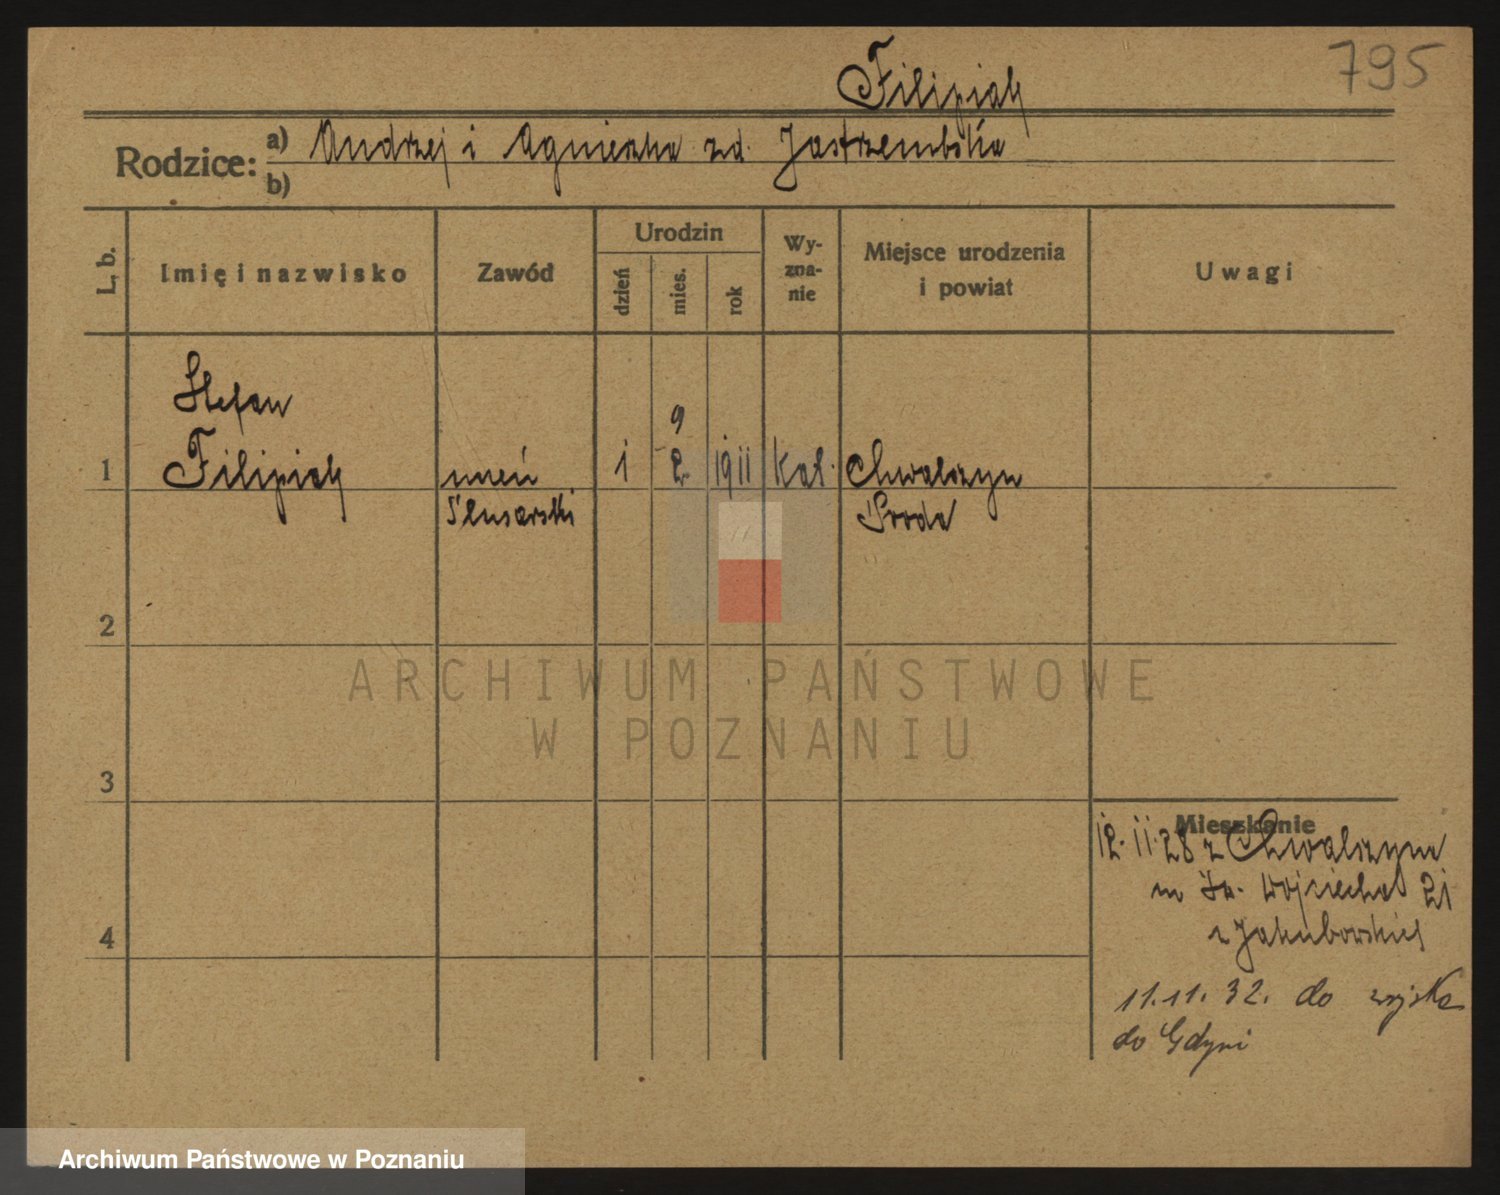 795
Filipiak
Rodzice: a) Andrzej i Agnieszka zd. Jastrzembska
b)
L. b.
Imię i nazwisko
Zawód
Urodzin
dzień
mies.
rok
Wy-
zna-
nie
Miejsce urodzenia
i powiat
Uwagi
Stefan
9
1 Filipiak uczeń 1 2 1911 kat. Chwalszyn
ślusarski Środa
2
3
4
ARCHIWUM PAŃSTWOWE
W POZNANIU
Mieszkanie
12. 11. 28 z Chwalszyna
Św. Wojciecha 21
z Jakubowskiej
11. 11. 32. do wojska
do Gdyni
Archiwum Państwowe w Poznaniu